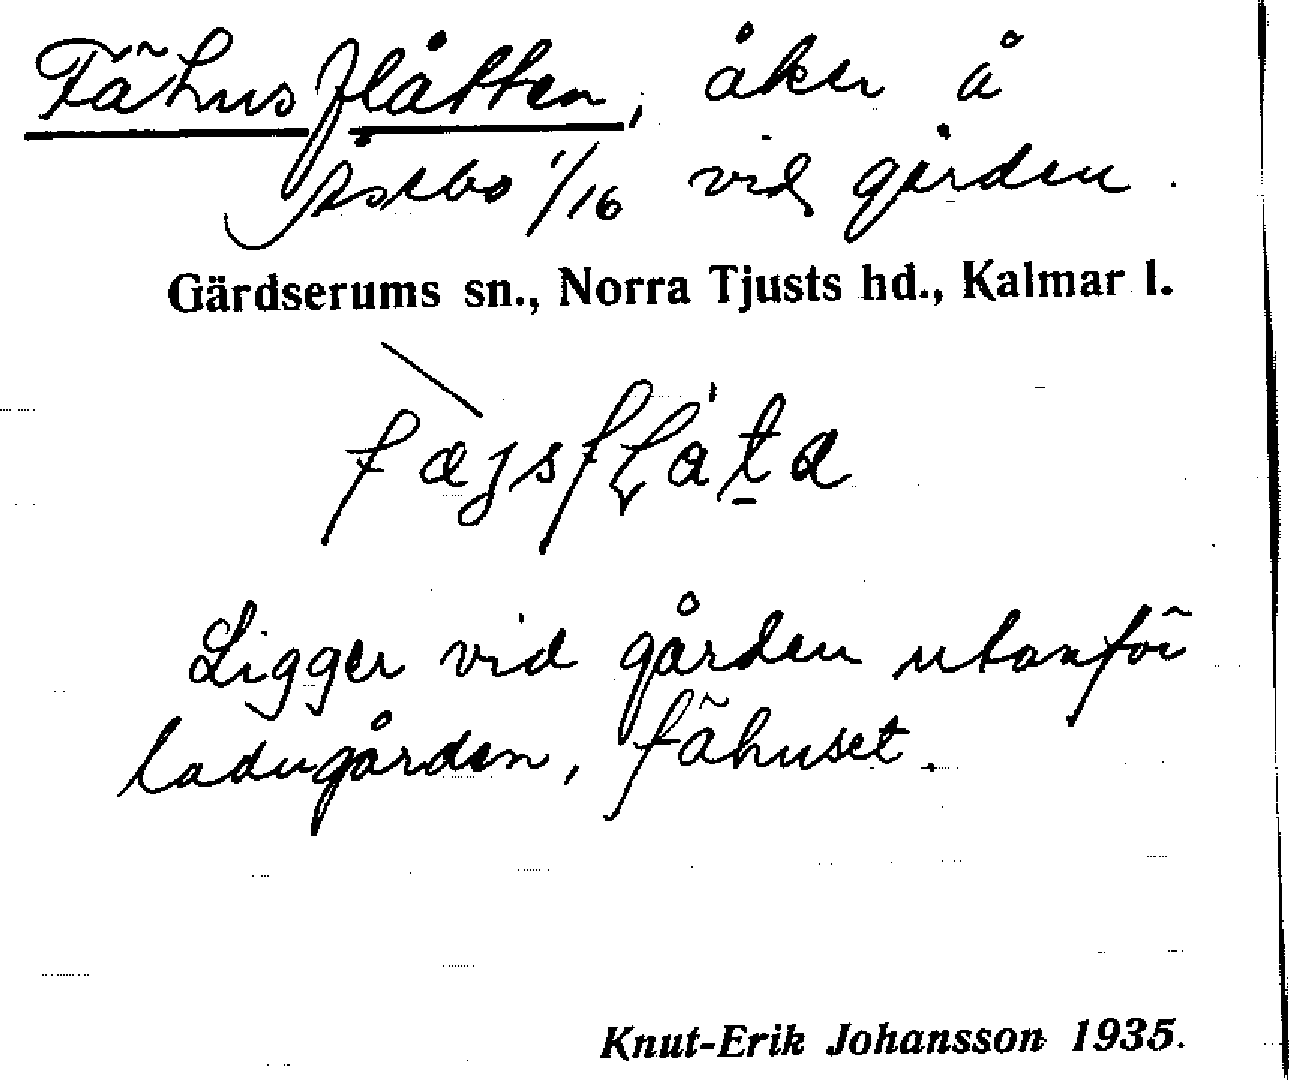 Fähusflåtten, åker å
Åsebo 1/16 vid gården.
Gärdserums sn., Norra Tjusts hd., Kalmar l.
Ligger vid gården utanför
ladugården, fähuset.
Knut-Erik Johansson 1935.